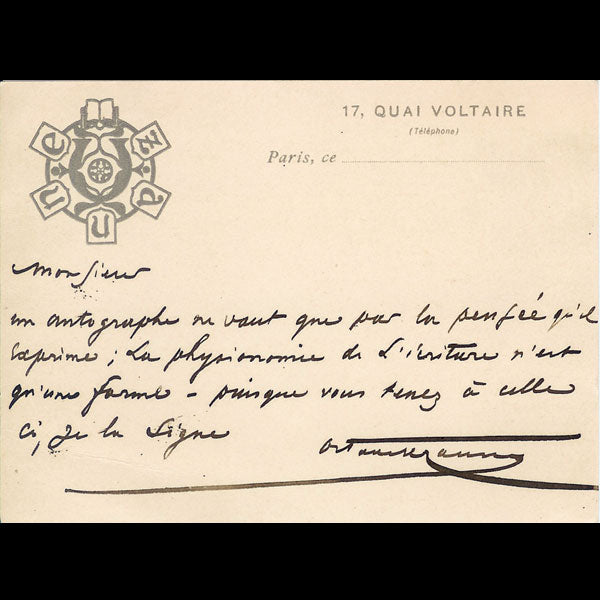 17, QUAI VOLTAIRE
(Téléphone)
Paris, ce
U
z
a
n
n
e
Monsieur
un autographe ne vaut que par la pensée qu'il
exprime ; La physionomie de L'écriture n'est
qu'une forme - puisque vous tenez à celle
ci, je la Signe
Octave Uzanne